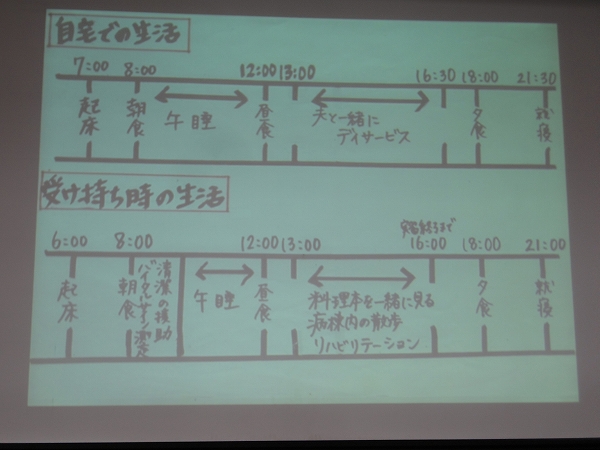 自宅での生活
7:00 8:00 12:00 13:00 16:30 18:00 21:30
起床
朝食
午睡
昼食
夫と一緒に
デイサービス
夕食
就寝
受け持ち時の生活
実習終了まで
6:00 8:00 12:00 13:00 16:00 18:00 21:00
起床
朝食
バイタルサイン測定
清潔の援助
午睡
昼食
料理本を一緒に見る
病棟内の散歩
リハビリテーション
夕食
就寝